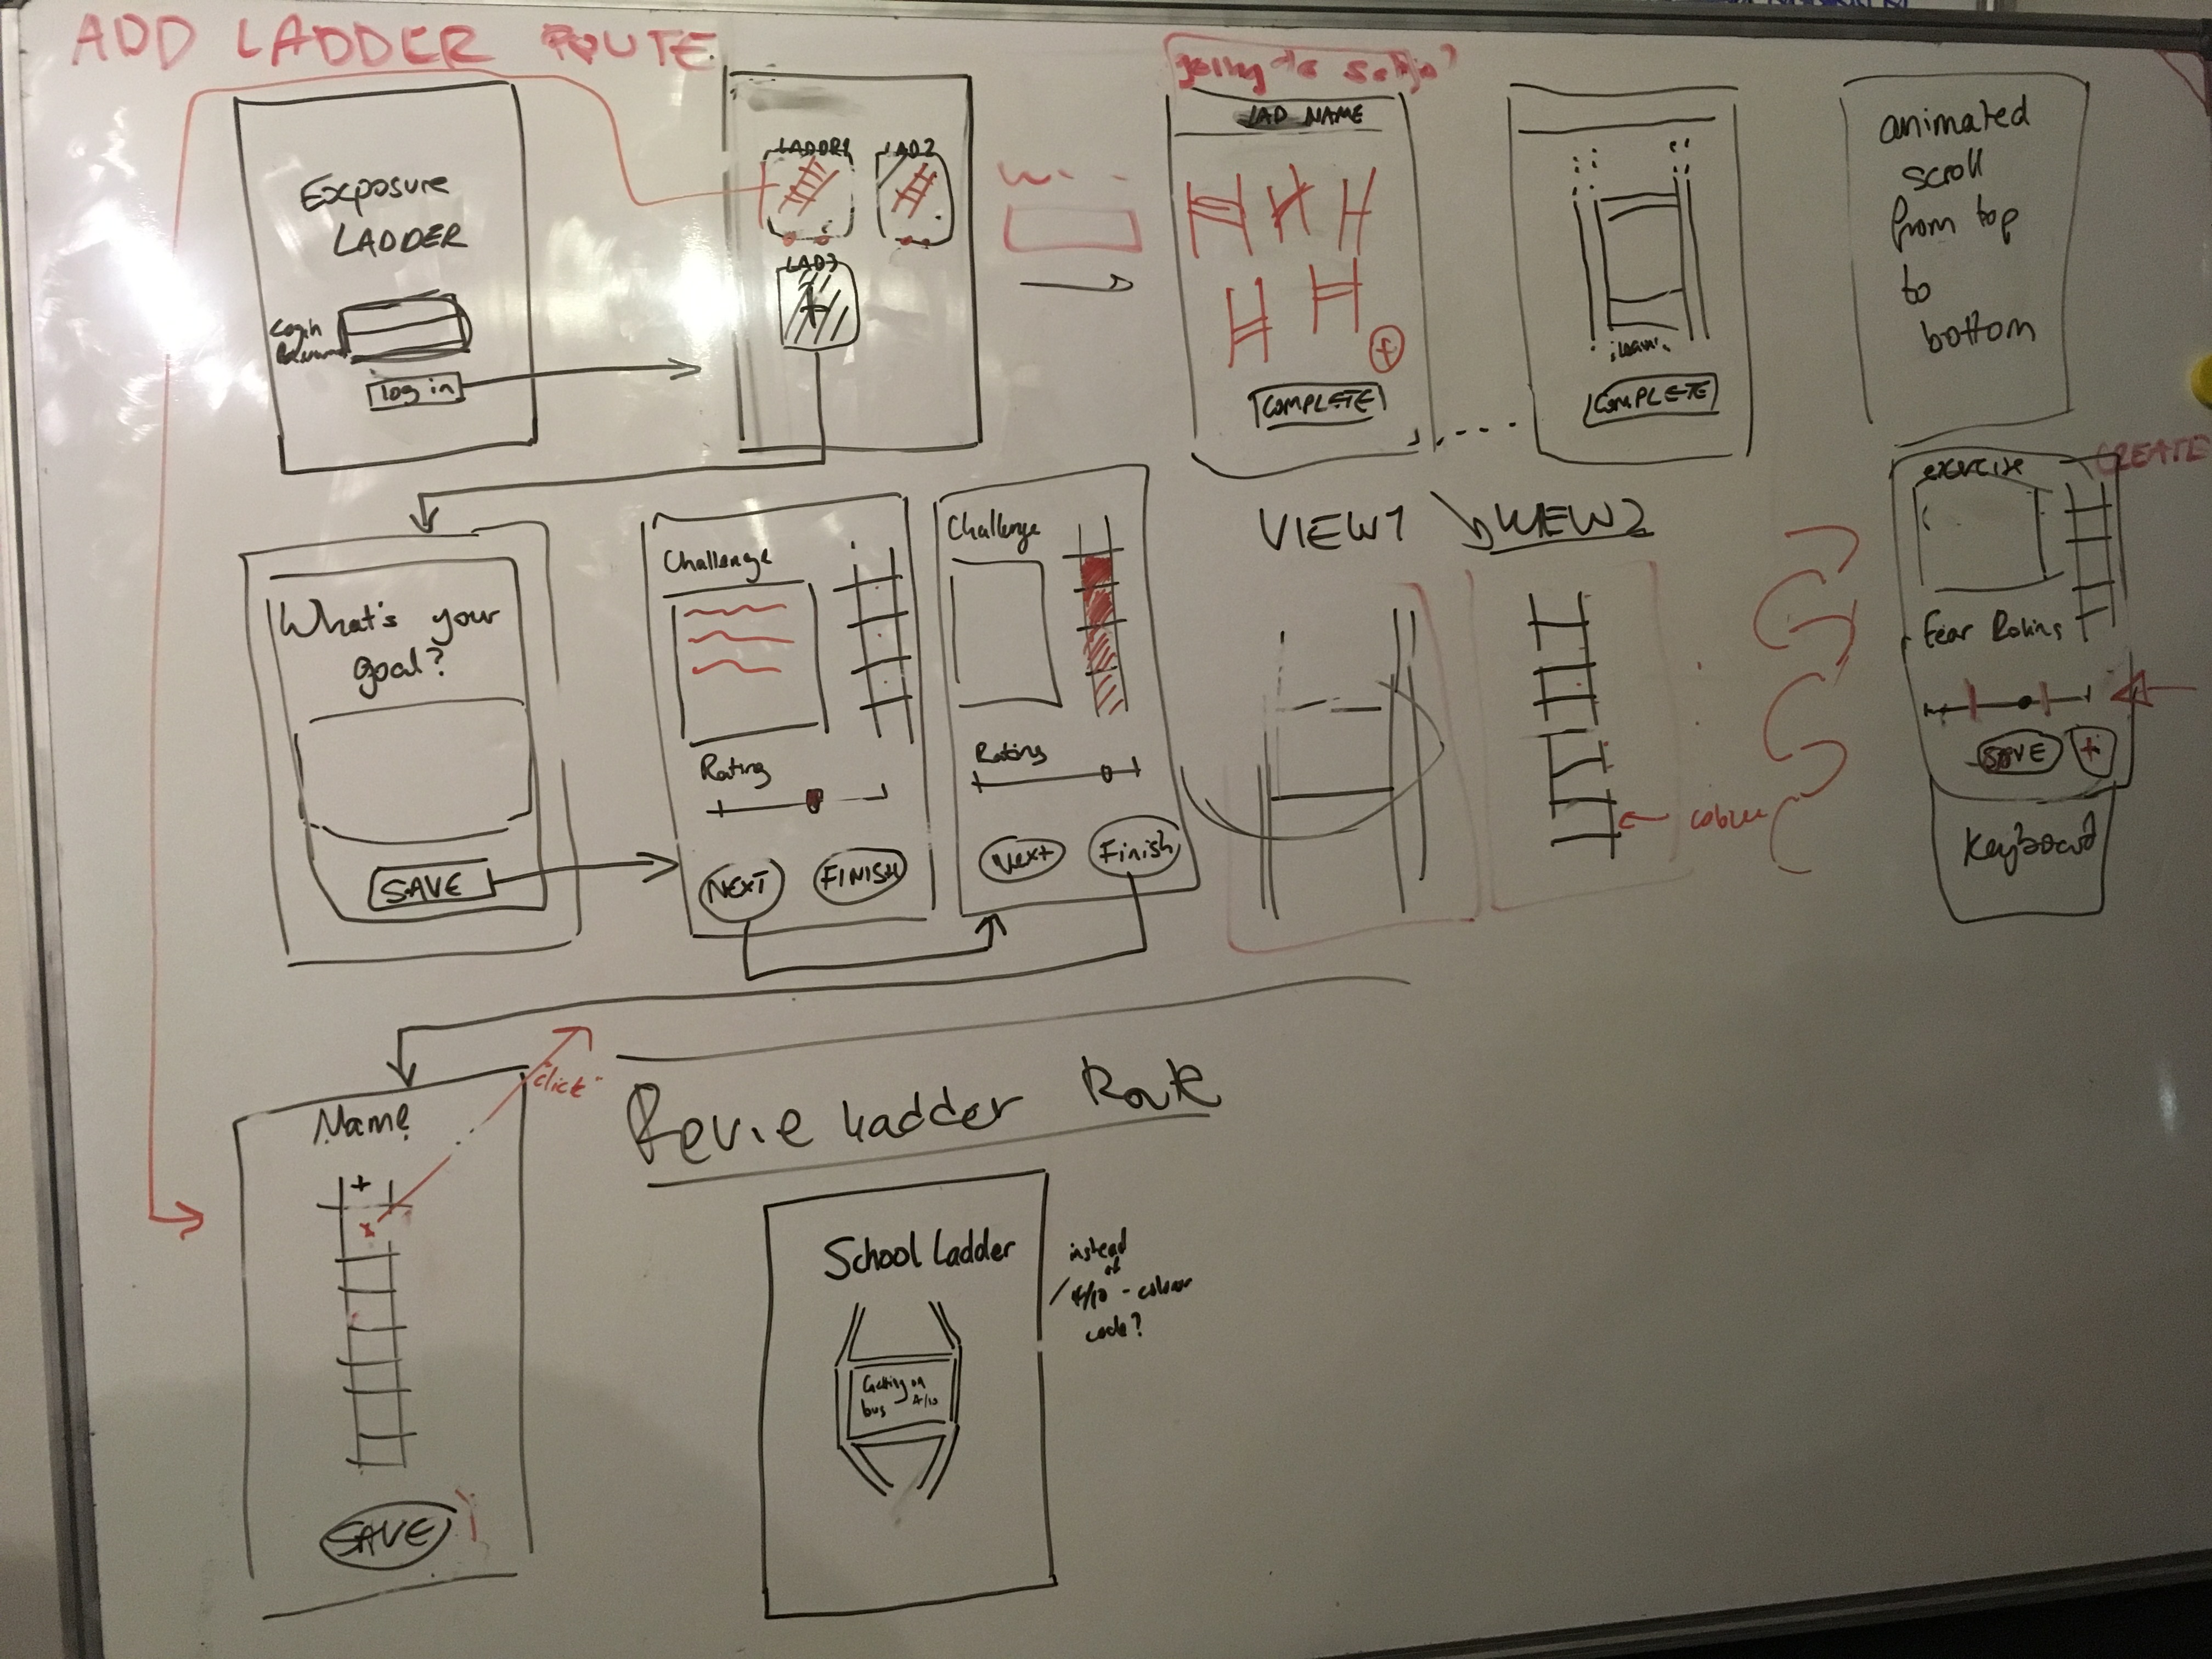 ADD LADDER ROUTE
Exposure
LADDER
Login
log in
LADDR1
LAD2
LAD3
going to
LAD NAME
COMPLETE
COMPLETE
animated
scroll
from top
to
bottom
What's your
goal?
SAVE
Challenge
Rating
NEXT
FINISH
Challenge
Rating
Next
Finish
VIEW1
VIEW2
colour
CREATE
exercise
Fear Rating
SAVE
+
Keyboard
click
Name
+
x
SAVE
Revie Ladder Route
School Ladder
Getting on
bus 4/10
instead
of
4/10 - colour
code?